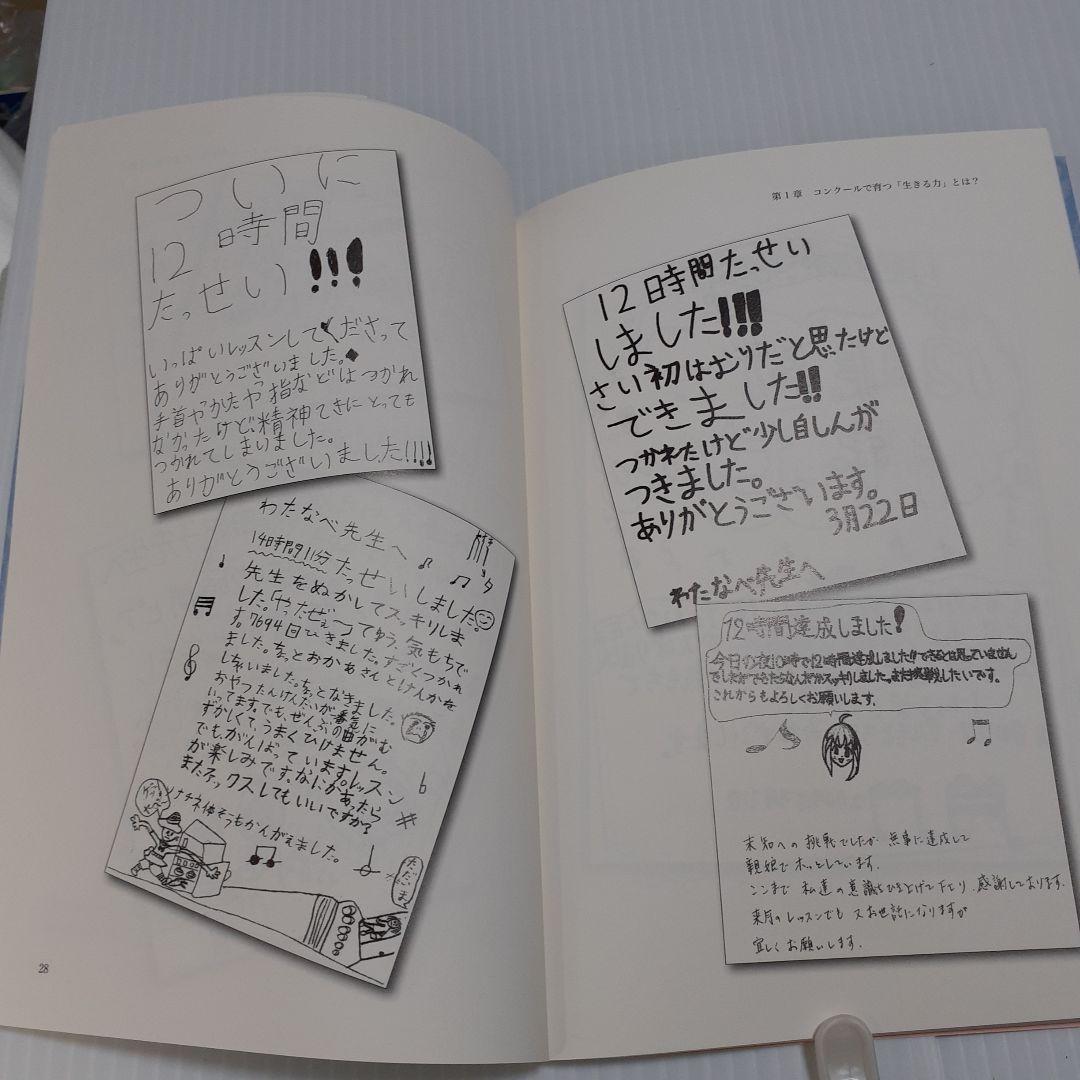 ついに
12時間
たっせい!!!
いっぱいレッスンしてくださって
ありがとうございました。
手首やかたや指などはつかれ
なかったけど精神てきにとっても
つかれてしまいました。
ありがとうございました!!!!
わたなべ先生へ
14時間911分たっせいしました
先生をぬかしてスッキリしま
した。「やったぜぇ」ってゆう、気もちで
す。7694回ひきました。すごくつかれ
ました。ちょっとおかあさんとけんかを
しちゃいました。ちょっとなきました。
おやつたんけんたいが番気に
いってます。でも、ぜんぶの曲がむ
ずかしくて、うまくひけません。
でも、がんばっています。レッスン
が楽しみです。なにかあったら
またファックスしてもいいですか?
ただいま
28
第1章 コンクールで育つ「生きる力」とは?
12時間たっせい
しました!!!
さい初はむりだと思たけど
できました!!
つかれたけど少し自しんが
つきました。
ありがとうございます。
3月22日
わたなべ先生へ
12時間達成しました!
今日の夜10時で12時間達成しました!!できるとは思っていません
でしたができたらなんだかスッキリしました。また挑戦したいです。
これからもよろしくお願いします。
未知への挑戦でしたが無事に達成して
親娘でホッとしています。
ここまで私達の意識をひき上げて下さり、感謝しております。
来月のレッスンでも又お世話になりますが
宜しくお願いします。